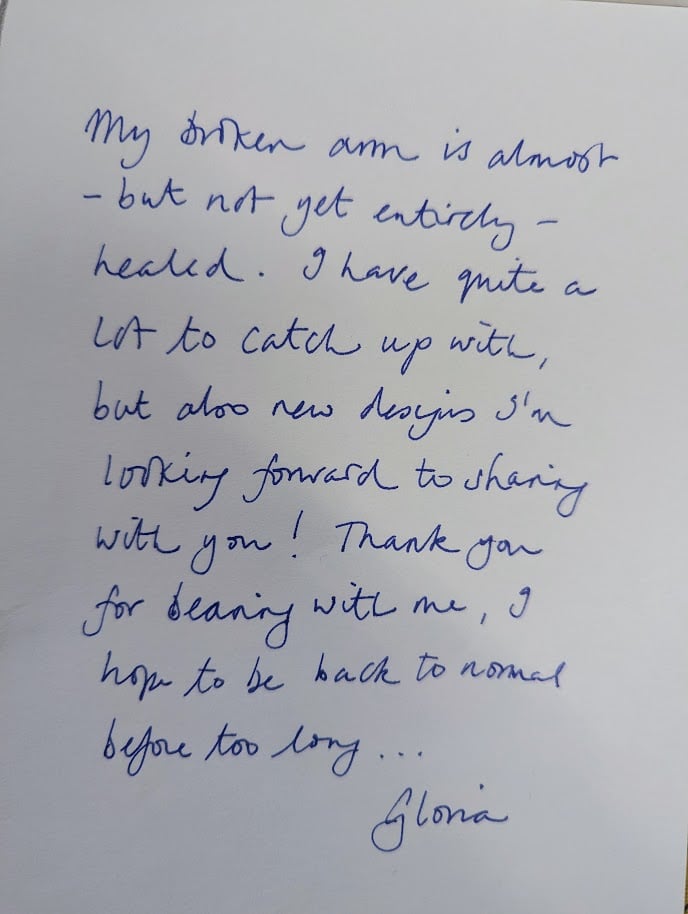 My broken arm is almost
- but not yet entirely -
healed. I have quite a
lot to catch up with,
but also new designs I'm
looking forward to sharing
with you! Thank you
for bearing with me, I
hope to be back to normal
before too long...
Gloria